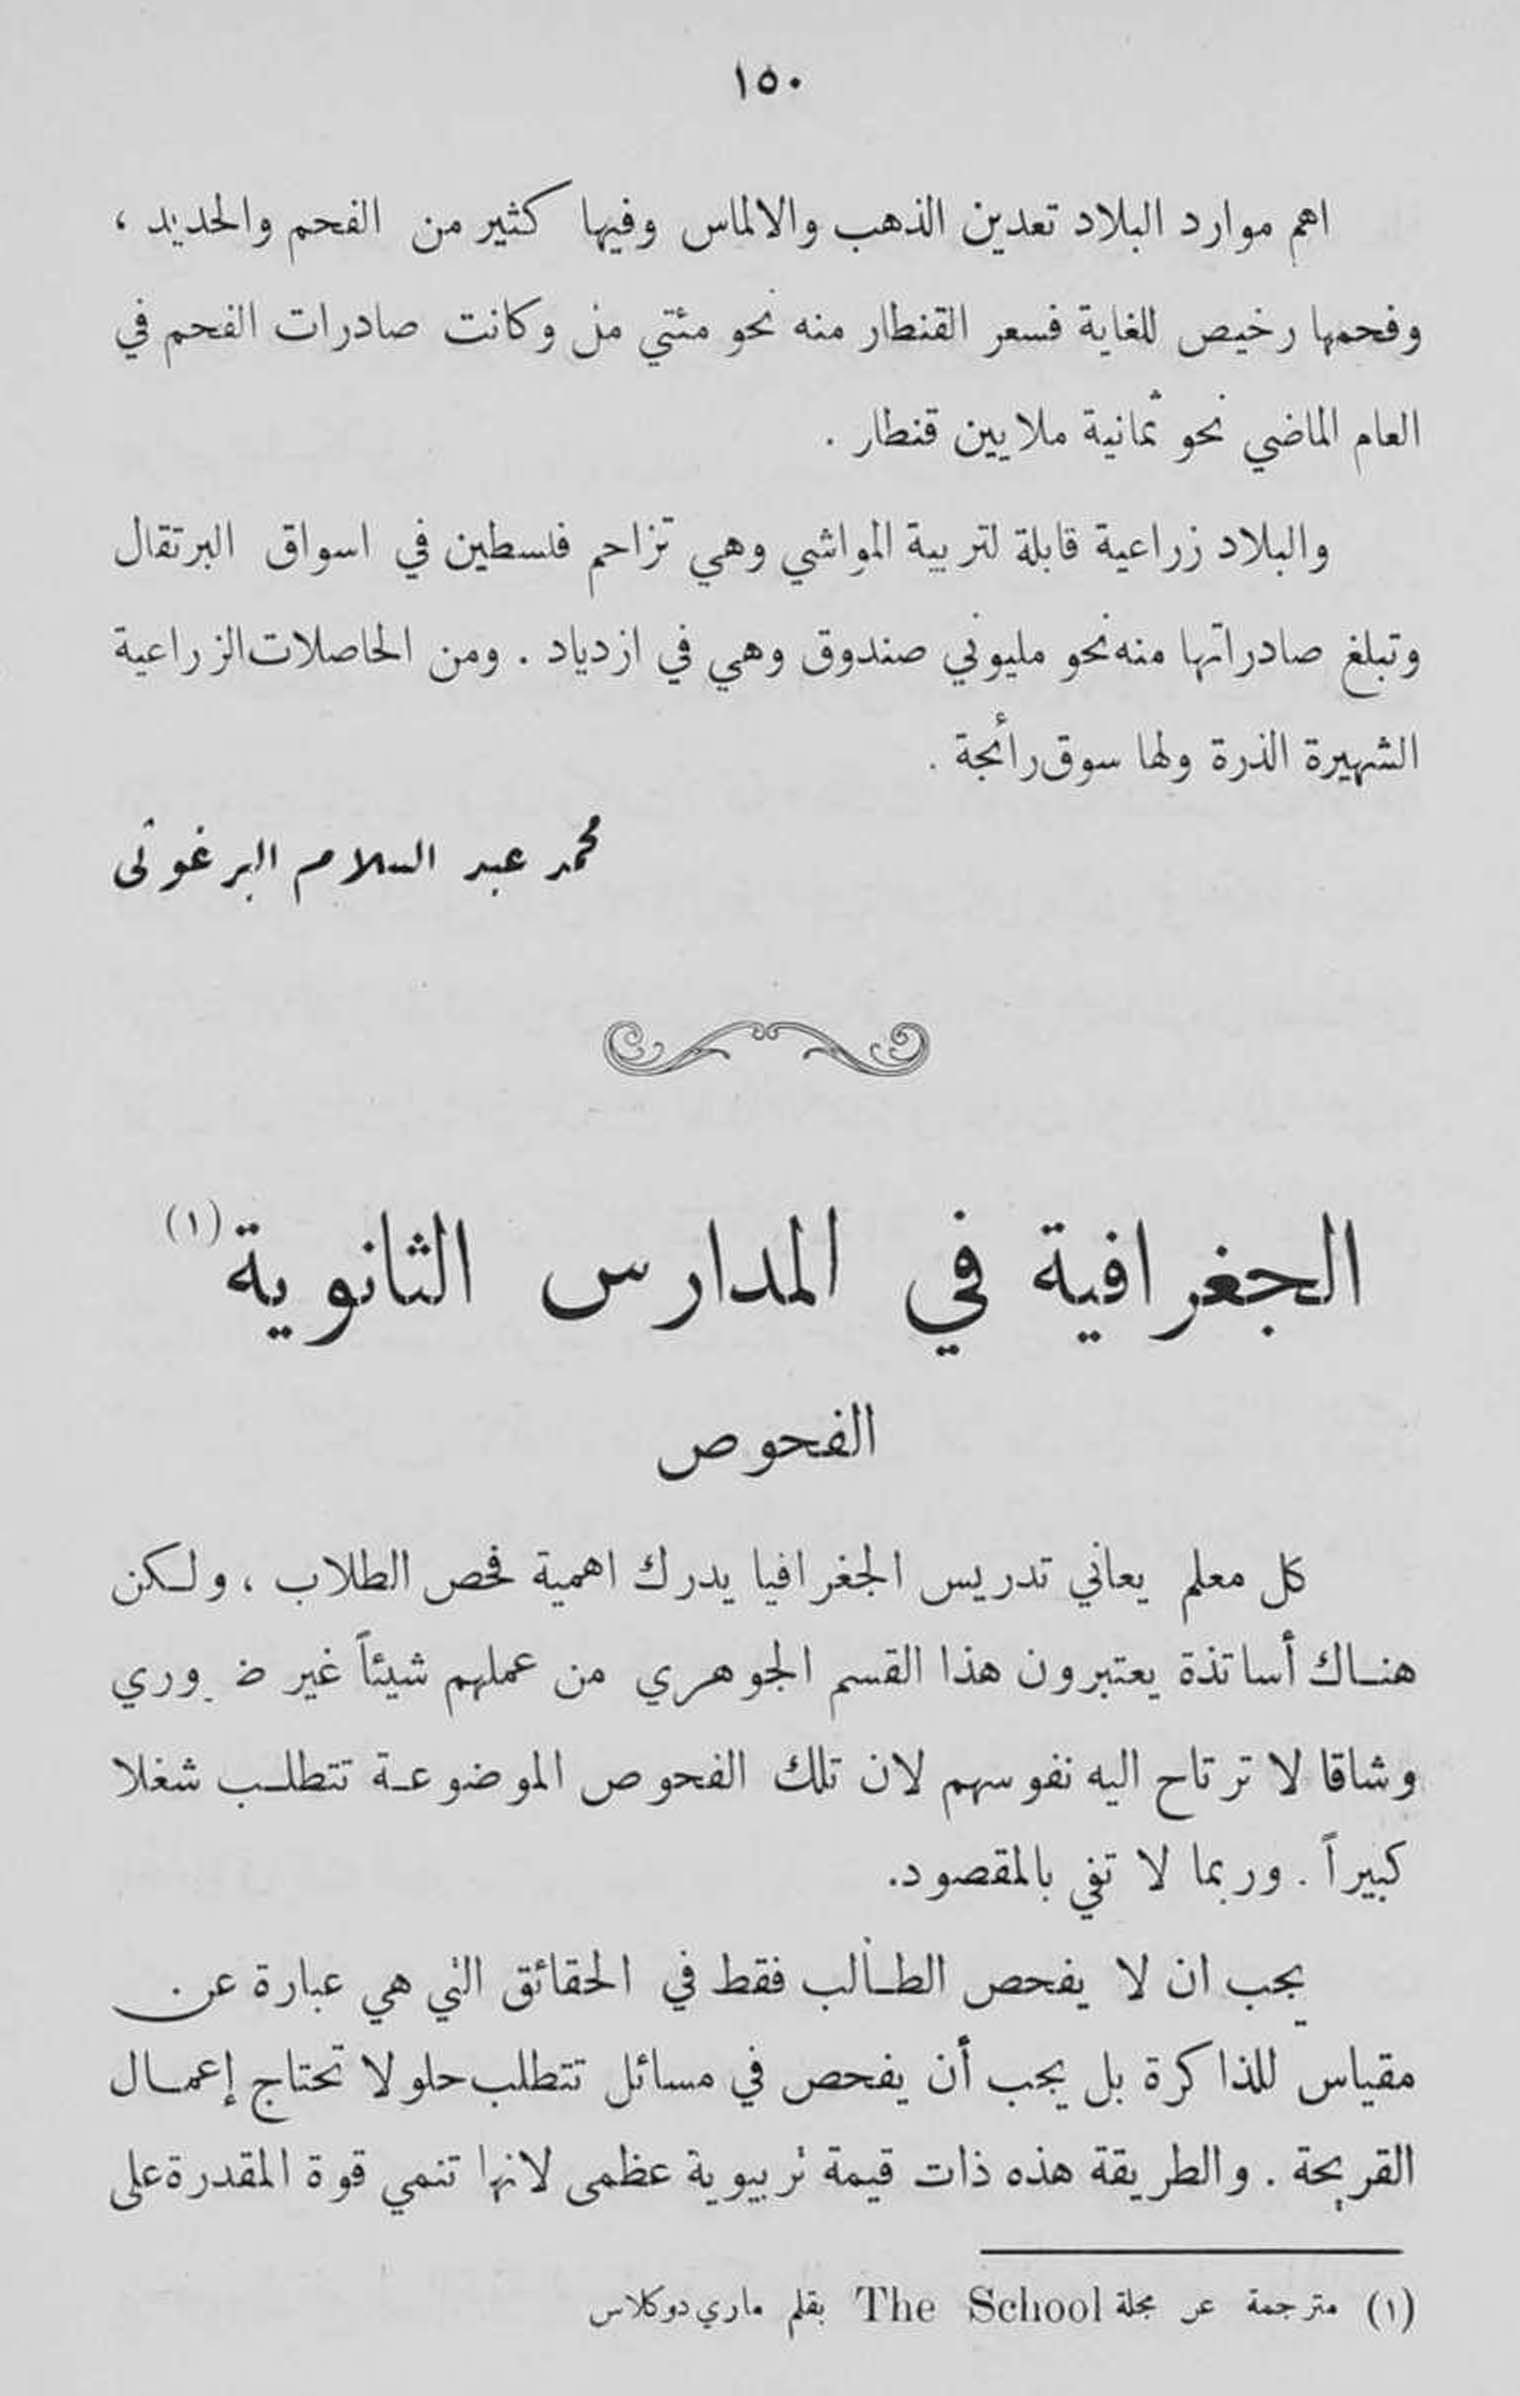 ١٥٠
اهم موارد البلاد تعدين الذهب والالماس وفيها كثير من الفحم والحديد ،
وفحمها رخيص للغاية فسعر القنطار منه نحو مئتي مل وكانت صادرات الفحم في
العام الماضي نحو ثمانية ملايين قنطار .
والبلاد زراعية قابلة لتربية المواشي وهي تزاحم فلسطين في اسواق البرتقال
وتبلغ صادراتها منه نحو مليوني صندوق وهي في ازدياد . ومن الحاصلات الزراعية
الشهيرة الذرة ولها سوق رائجة .
محمد عبد السلام البرغوثى
الجغرافية في المدارس الثانوية (١)
الفحوص
كل معلم يعاني تدريس الجغرافيا يدرك اهمية فحص الطلاب ، ولكن
هناك أساتذة يعتبرون هذا القسم الجوهري من عملهم شيئاً غير ضروري
وشاقا لا ترتاح اليه نفوسهم لان تلك الفحوص الموضوعة تتطلب شغلا
كبيراً . وربما لا تفي بالمقصود.
يجب ان لا يفحص الطالب فقط في الحقائق التي هي عبارة عن
مقياس للذاكرة بل يجب أن يفحص في مسائل تتطلب حلولا تحتاج إعمال
القريحة . والطريقة هذه ذات قيمة تربيوية عظمى لانها تنمي قوة المقدرة على
(١) مترجمة عن مجلة The School بقلم ماري دوكلاس